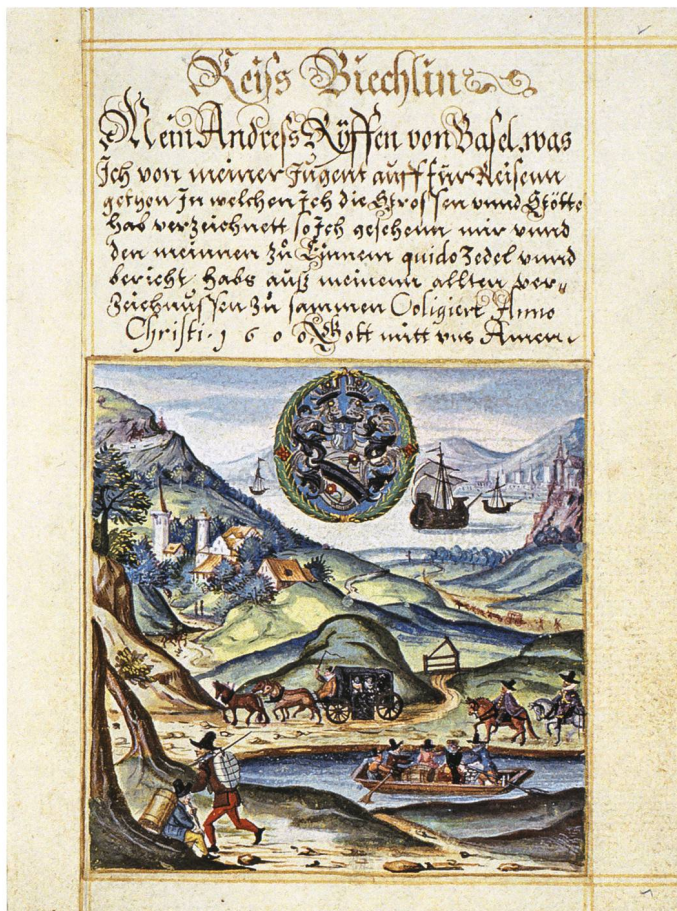 Reiss Biechlin
Mein Andress Ryffen von Basel, was
Ich von meiner Jugent auff für Reisenn
gethon In welchen Ich die Grossen vnnd Stötte
hab verzeichnett so Ich gesehenn mir vnnd
den meinnen zů Einnem quido Zedel vnnd
bericht, habs auß meinenn allten ver„
Zeichnussen zů sammen Coligiert, Anno
Christi. 1600 Gott mitt vns Amen